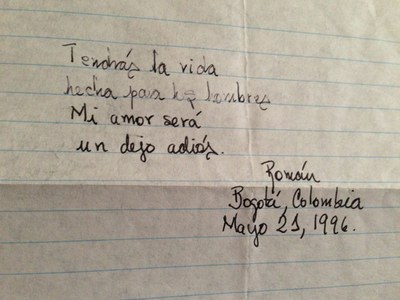 Tendrás la vida
hecha para los hombres
Mi amor será
un dejo adiós.
Román
Bogotá, Colombia
Mayo 21, 1996.